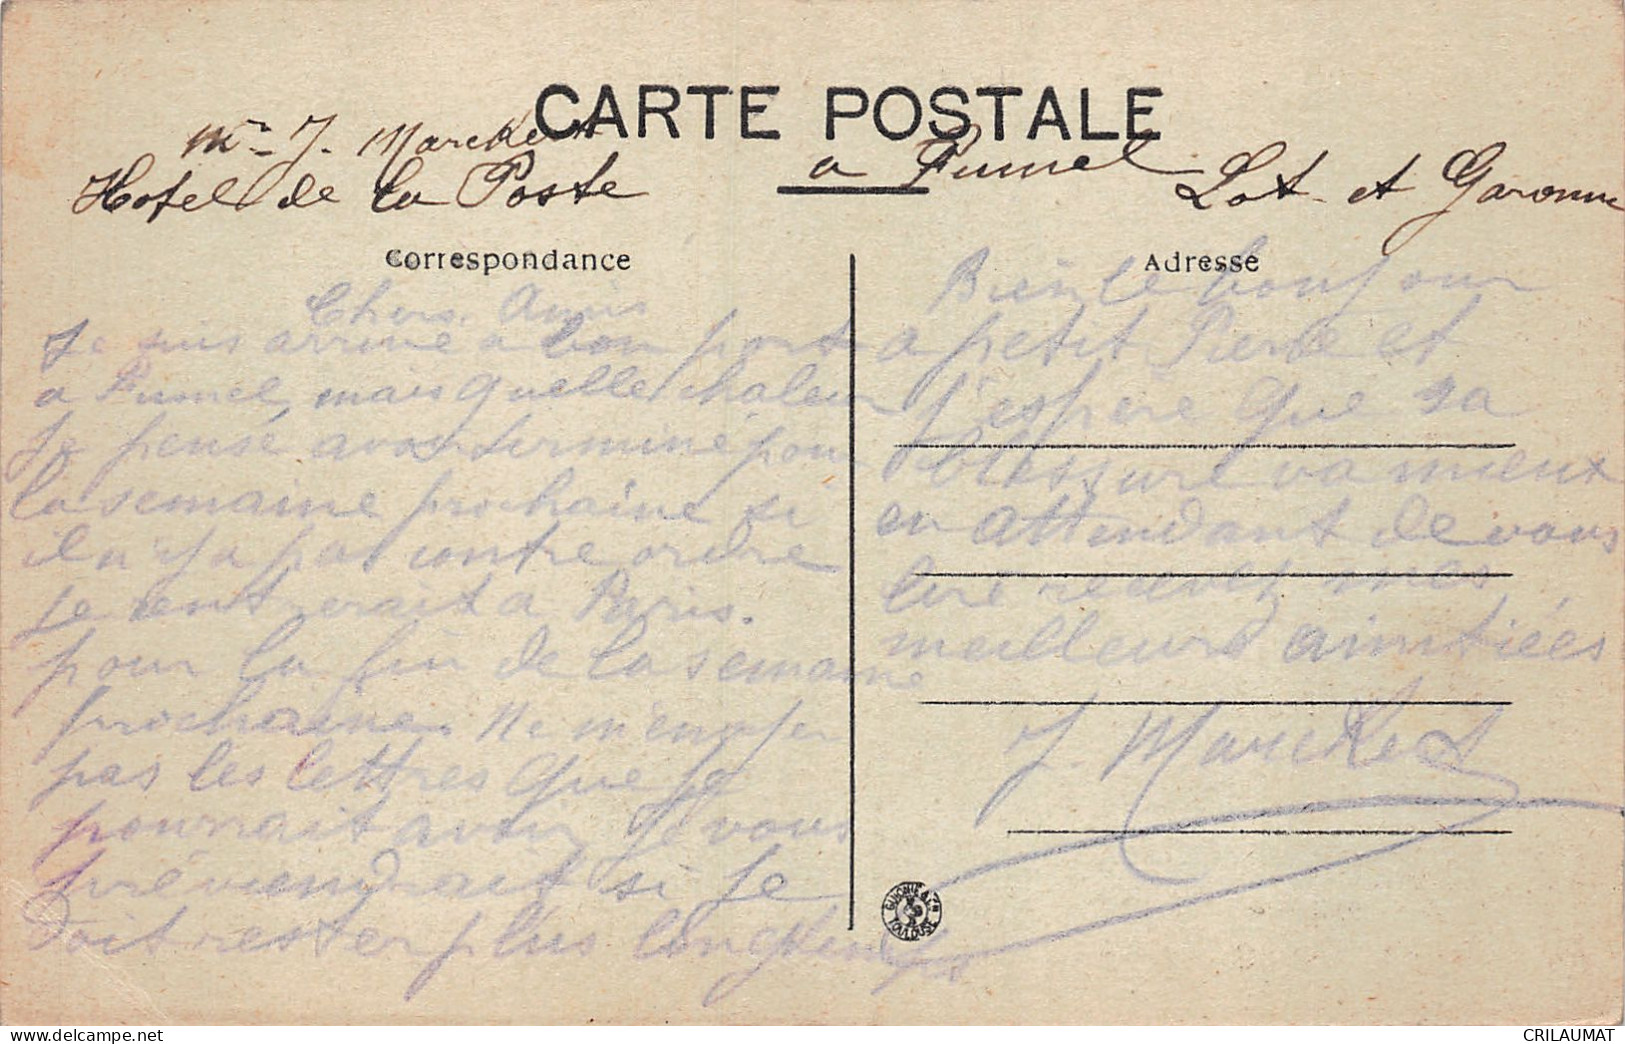 CARTE POSTALE
Mr J. Marckert
Hotel de la Poste a Fumel Lot et Garonne
Correspondance
Chers Amis
Je suis arrivé a bon port
a Fumel, mais quelle chaleur
Je pense avoir terminé pour
la semaine prochaine si
il n'y a pas contre ordre
je rentrerait a Paris.
pour la fin de la semaine
prochaine. Ne m'envoyer
pas les lettres que je
pourrait avoir Je vous
préviendrait si je
doit rester plus longtemps
Adresse
Bien le bonjour
a petit Pierre et
j'espère que sa
blessure va mieux
en attendant de vous
lire recevez mes
meilleurs amitiées
J. Marckert
TOULOUSE
delcampe.net
CRILAUMAT